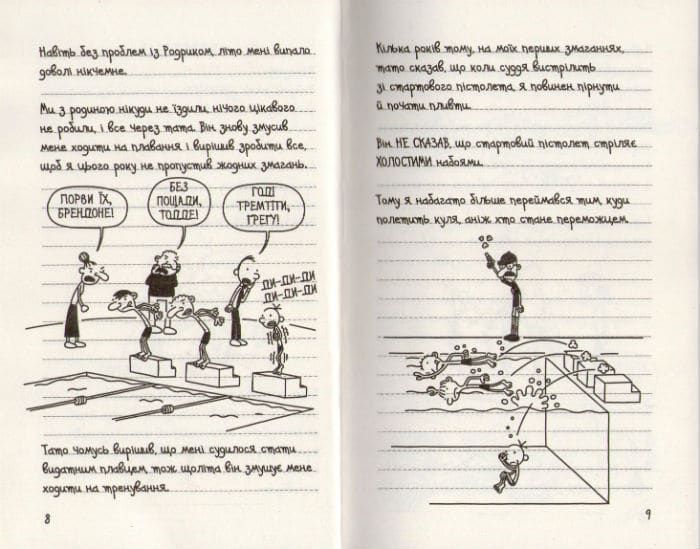 Навіть без проблем із Родриком, літо мені випало
доволі нікчемне.
Ми з родиною нікуди не їздили, нічого цікавого
не робили, і все через тата. Він знову змусив
мене ходити на плавання і вирішив зробити все,
щоб я цього року не пропустив жодних змагань.
ПОРВИ ЇХ,
БРЕНДОНЕ!
БЕЗ
ПОЩАДИ,
ТОДДЕ!
ГОДІ
ТРЕМТІТИ,
ҐРЕҐУ!
ДИ-ДИ-ДИ
ДИ-ДИ-ДИ
Тато чомусь вирішив, що мені судилося стати
видатним плавцем, тож щоліта він змушує мене
ходити на тренування.
8
Кілька років тому, на моїх перших змаганнях,
тато сказав, що коли суддя вистрілить
зі стартового пістолета, я повинен пірнути
й почати пливти.
Він НЕ СКАЗАВ, що стартовий пістолет стріляє
ХОЛОСТИМИ набоями.
Тому я набагато більше переймався тим, куди
полетить куля, аніж хто стане переможцем.
9